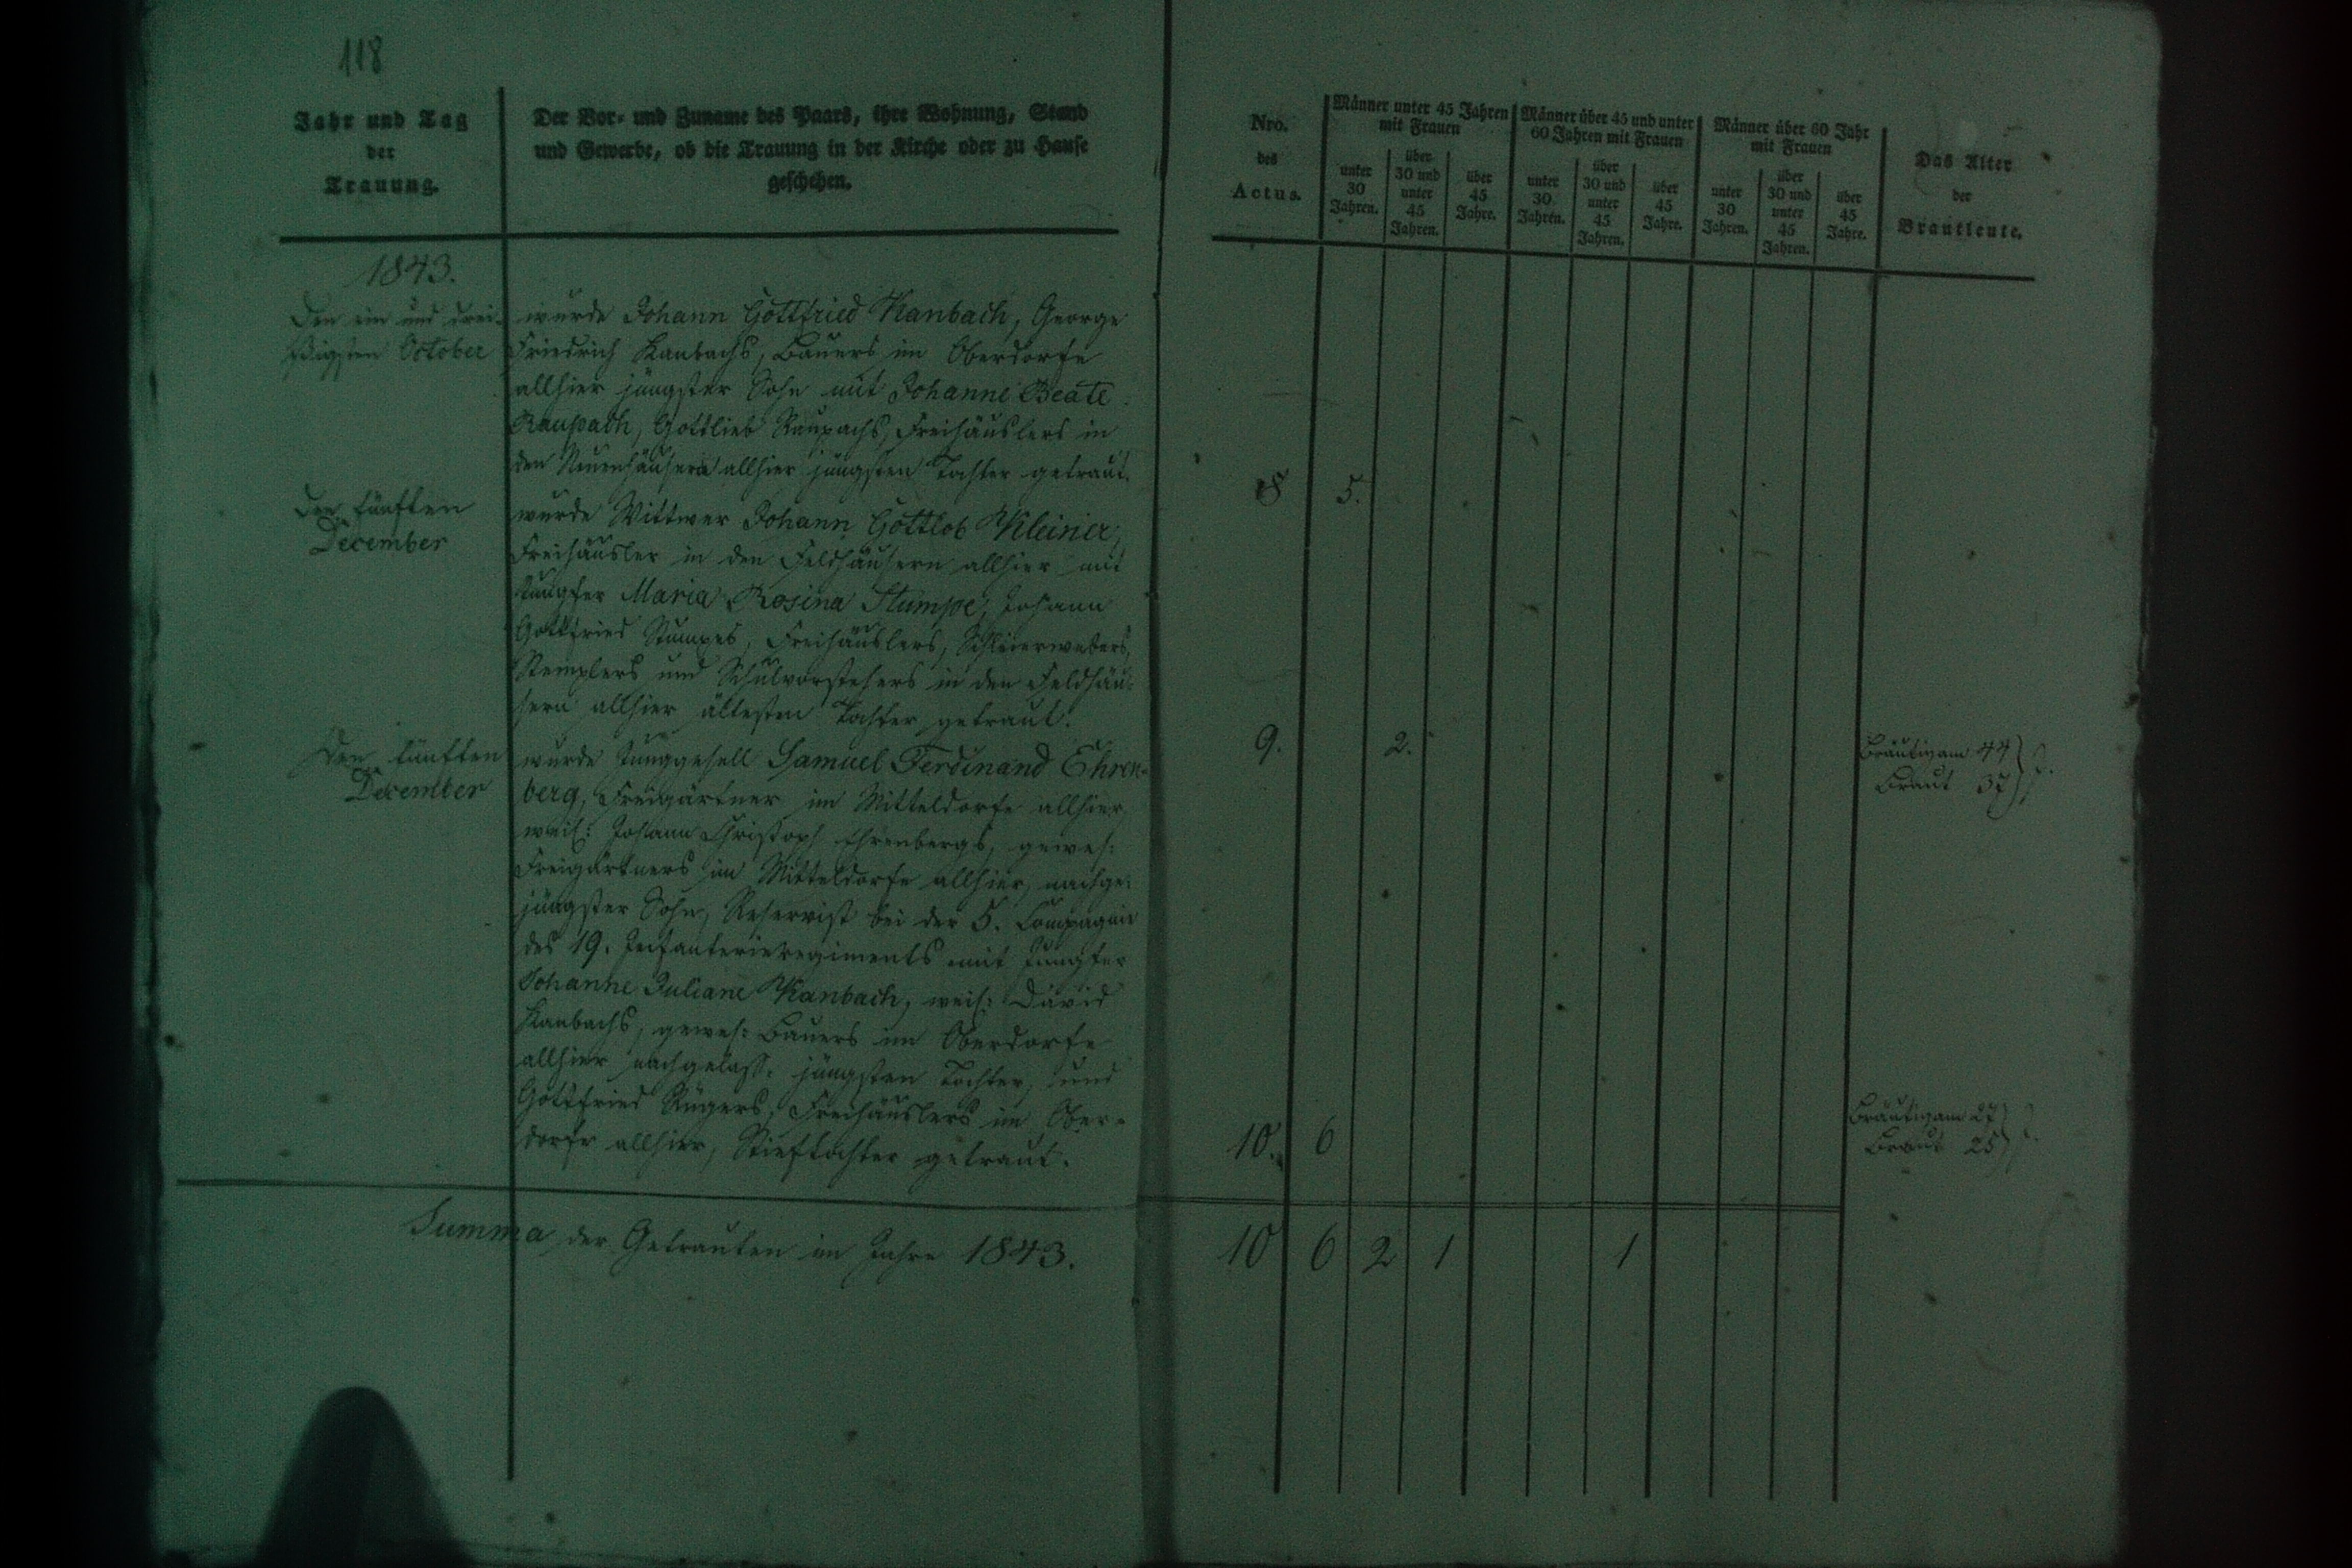 118
Jahr und Tag
der
Trauung.
Der Vor- und Zuname des Paars, ihre Wohnung, Stand
und Gewerbe, ob die Trauung in der Kirche oder zu Hause
geschehen.
Nro.
des
Actus.
Männer unter 45 Jahren
mit Frauen
unter
30
Jahren.
über
30 und
unter
45
Jahren.
über
45
Jahre.
Männer über 45 und unter
60 Jahren mit Frauen
unter
30
Jahren.
über
30 und
unter
45
Jahren.
über
45
Jahre.
Männer über 60 Jahr
mit Frauen
unter
30
Jahren.
über
30 und
unter
45
Jahren.
über
45
Jahre.
Das Alter
der
Brautleute.
1843.
Den ein und drei-
ßigsten October
wurde Johann Gottfried Kanbach, George
Friedrich Kanbachs, Bauers im Oberdorfe
allhier jüngster Sohn mit Johanne Beate
Raupach, Gottlieb Raupachs, Freihäuslers in
den Neuenhäusern allhier jüngsten Tochter getraut.
8 5.
Den fünften
December
wurde Wittwer Johann Gottlob Kleiner,
Freihäusler in den Feldhäusern allhier mit
Jungfer Maria Rosina Stumpe, Johann
Gottfried Stumpes, Freihäuslers, Schleierwebers,
Stemplers und Schulvorstehers in den Feldhäu-
sern allhier ältesten Tochter getraut.
9. 2.
Bräutigam 44
Braut 37
Den fünften
December
wurde Junggesell Samuel Ferdinand Ehren-
berg, Freigärtner im Mitteldorfe allhier,
weil: Johann Christoph Ehrenbergs, gewes:
Freigärtners im Mitteldorfe allhier, nachge:
jüngster Sohn, Reservist bei der 5. Compagnie
des 19. Infanterieregiments mit Jungfer
Johanne Juliane Kanbach, weil: David
Kanbachs, gewes: Bauers im Oberdorfe
allhier nachgelass: jüngsten Tochter, und
Gottfried Rügers, Freihäuslers im Ober-
dorfe allhier, Stieftochter getraut.
10. 6
Bräutigam 27
Braut 25
Summa der Getrauten im Jahre 1843.
10 6 2 1 1